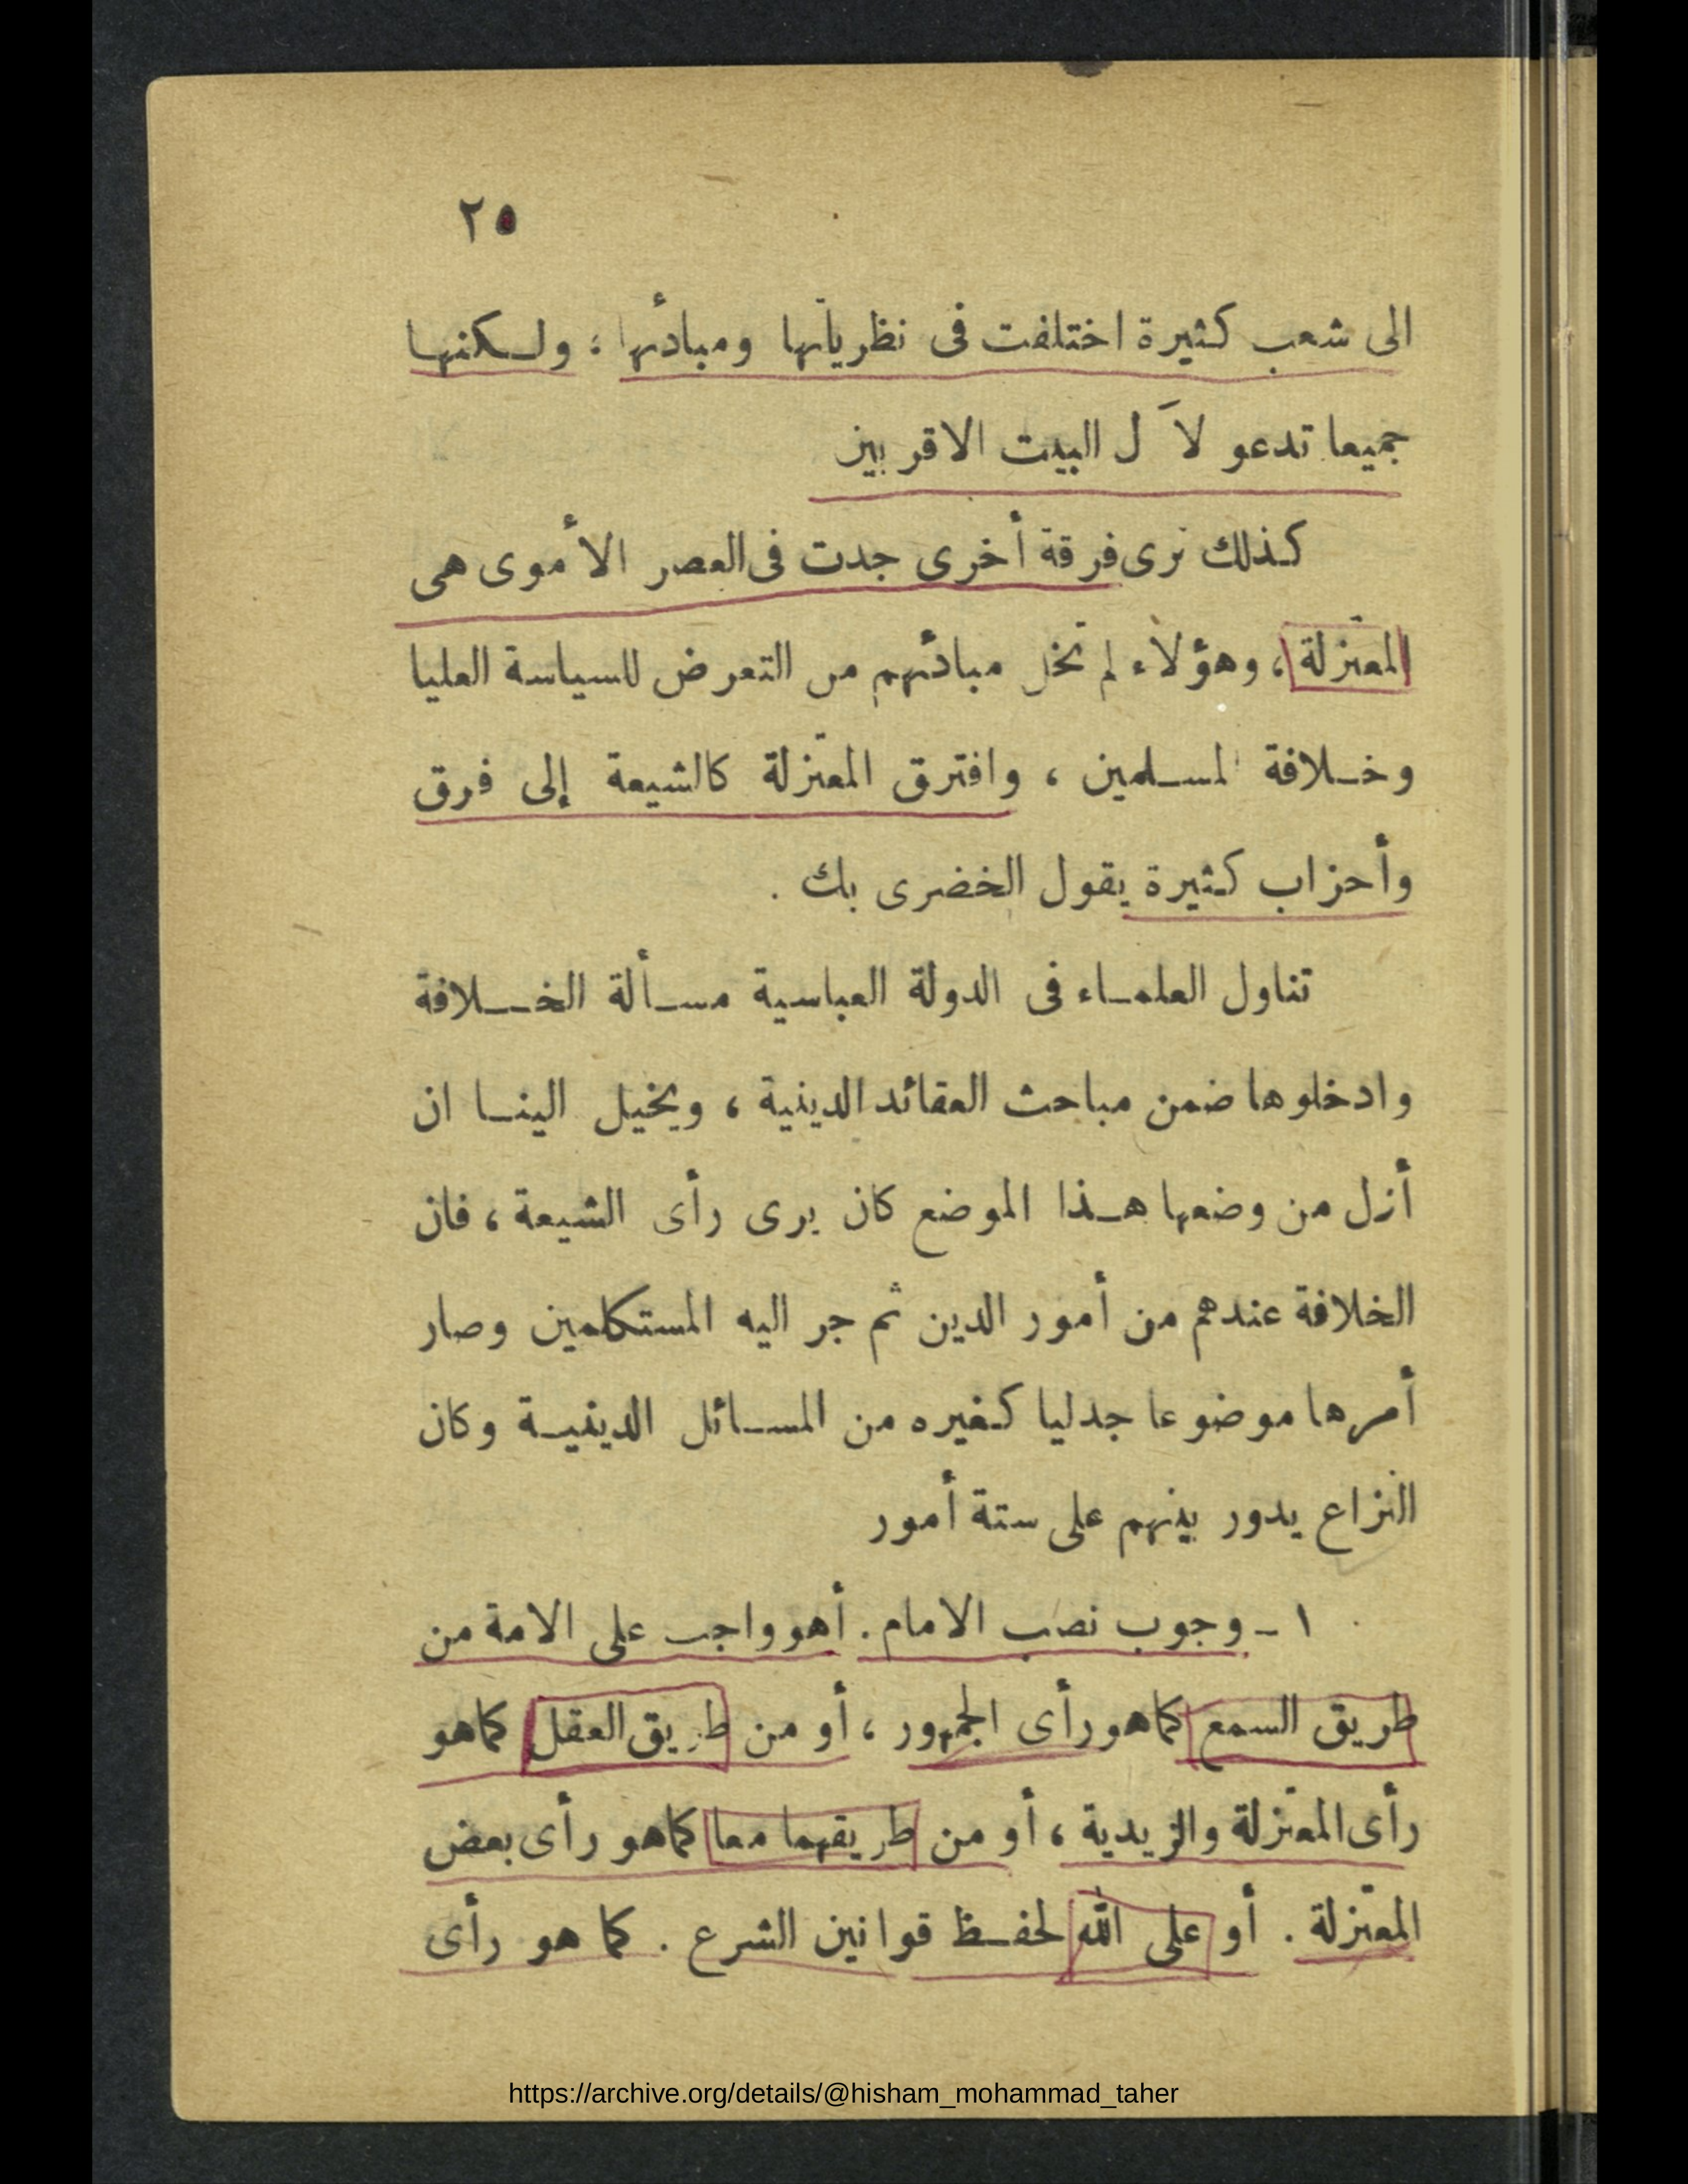 ٢٥
الى شعب كثيرة اختلفت فى نظرياتها ومبادئها ؛ ولكنها
جميعا تدعو لآل البيت الاقربين
كذلك نرى فرقة أخرى جدت فى العصر الأموى هى
المعتزلة ، وهؤلاء لم تخل مبادئهم من التعرض للسياسة العليا
وخلافة المسلمين ، وافترق المعتزلة كالشيعة إلى فرق
وأحزاب كثيرة يقول الخضرى بك .
تناول العلماء فى الدولة العباسية مسألة الخلافة
وادخلوها ضمن مباحث العقائد الدينية ، ويخيل الينا ان
أزل من وضعها هذا الموضع كان يرى رأى الشيعة ، فان
الخلافة عندهم من أمور الدين ثم جر اليه المستكلمين وصار
أمرها موضوعا جدليا كغيره من المسائل الدينية وكان
النزاع يدور بينهم على ستة أمور
١ - وجوب نصب الامام . أهو واجب على الامة من
طريق السمع كما هو رأى الجمهور ، أو من طريق العقل كما هو
رأى المعتزلة والزيدية ، أو من طريقهما معا كما هو رأى بعض
المعتزلة . أو على الله لحفظ قوانين الشرع . كما هو رأى
https://archive.org/details/@hisham_mohammad_taher